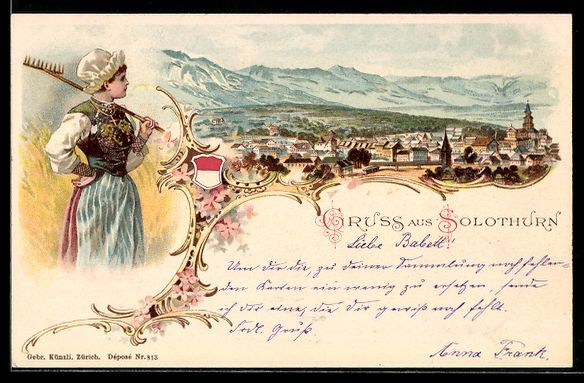 GRUSS AUS SOLOTHURN
Liebe Babett!
Um dir die, zu deiner Sammlung noch fehlen-
den Karten ein wenig zu ersetzen, sende
ich dir eine, die dir gewiß noch fehlt.
Frdl. Gruß
Anna Frank.
Gebr. Künzli, Zürich. Déposé Nr. 813